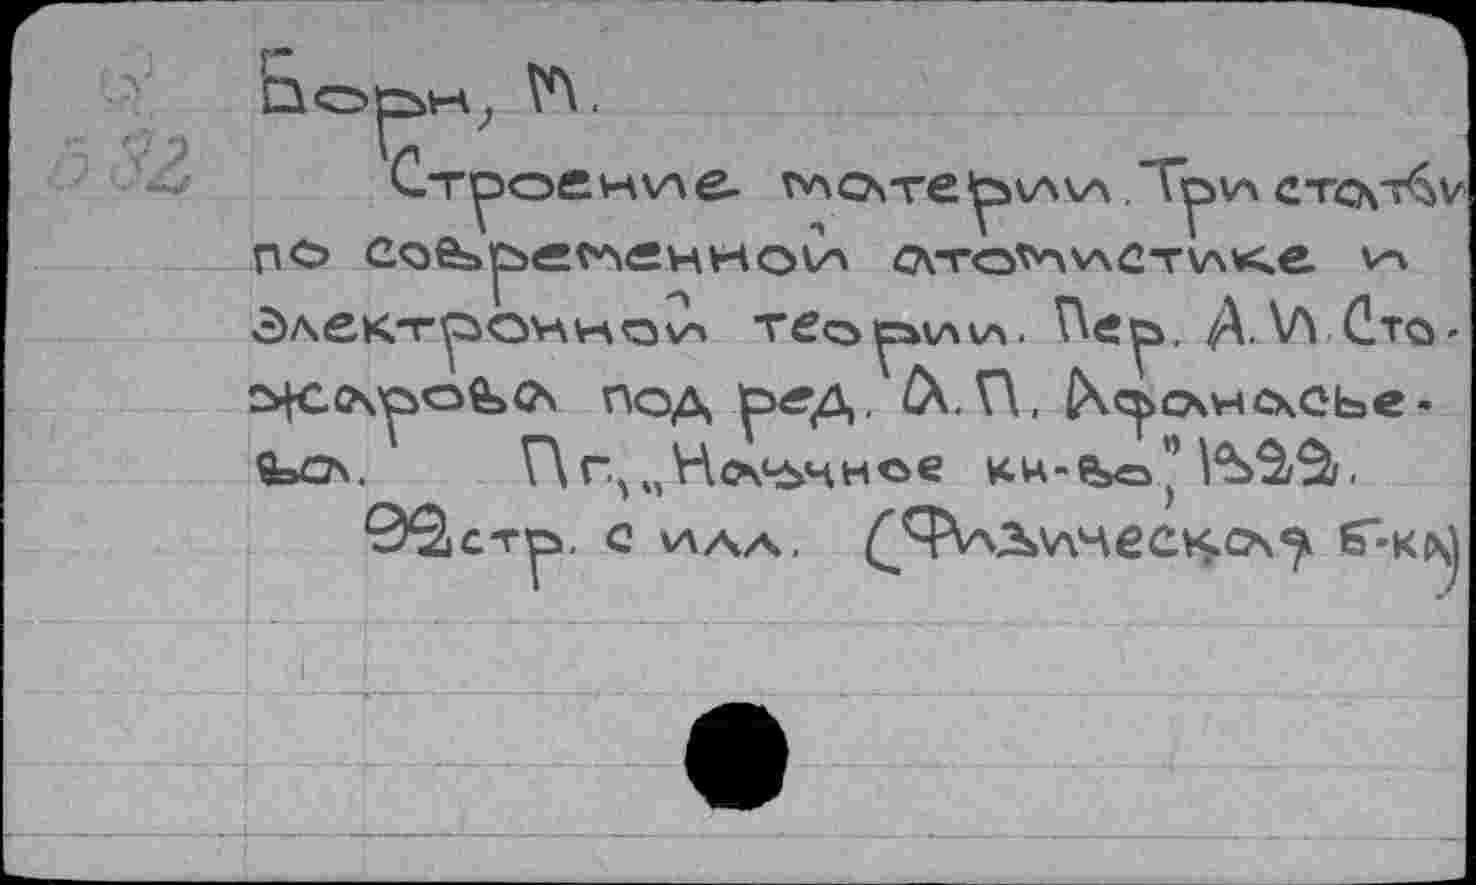 Борн, М.
Б 82
Строение материи. Три статьи
по современной атомистике и
электронной теории. Пер. А. И. Сто-
жарова под ред. А. П. Афанасье-
ва. Пг., „Научное кн-во", 1922.
92 стр. с илл. (Физическая б-ка)